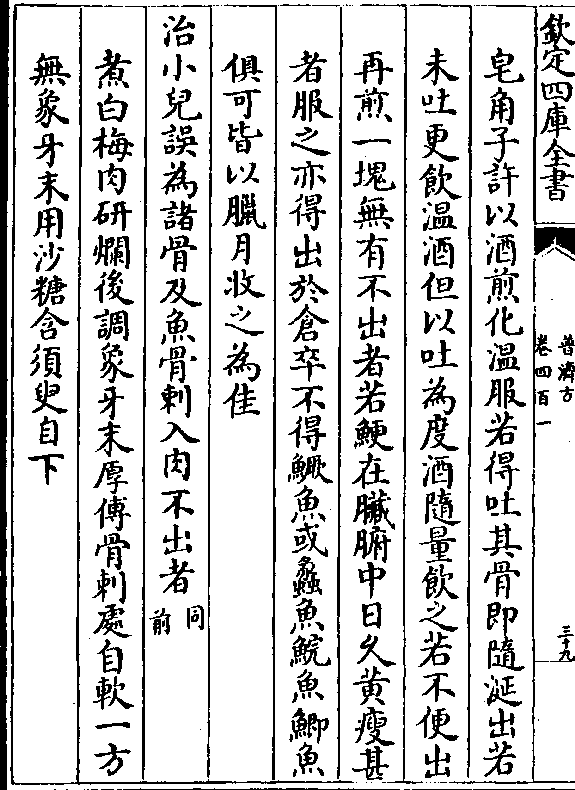 欽定四庫全書
普濟方
卷四百一
三十九
皂角子許以酒煎化溫服若得吐其骨即隨涎出若
未吐更飲溫酒但以吐為度酒隨量飲之若不便出
再煎一塊無有不出者若鯁在臟腑中日久黃瘦甚
者服之亦得出於倉卒不得鱖魚或蠡魚鯇魚鯽魚
俱可皆以臘月收之為佳
治小兒誤為諸骨及魚骨刺入肉不出者同前
煮白梅肉研爛後調象牙末厚傅骨刺處自軟一方
無象牙末用沙糖含須臾自下